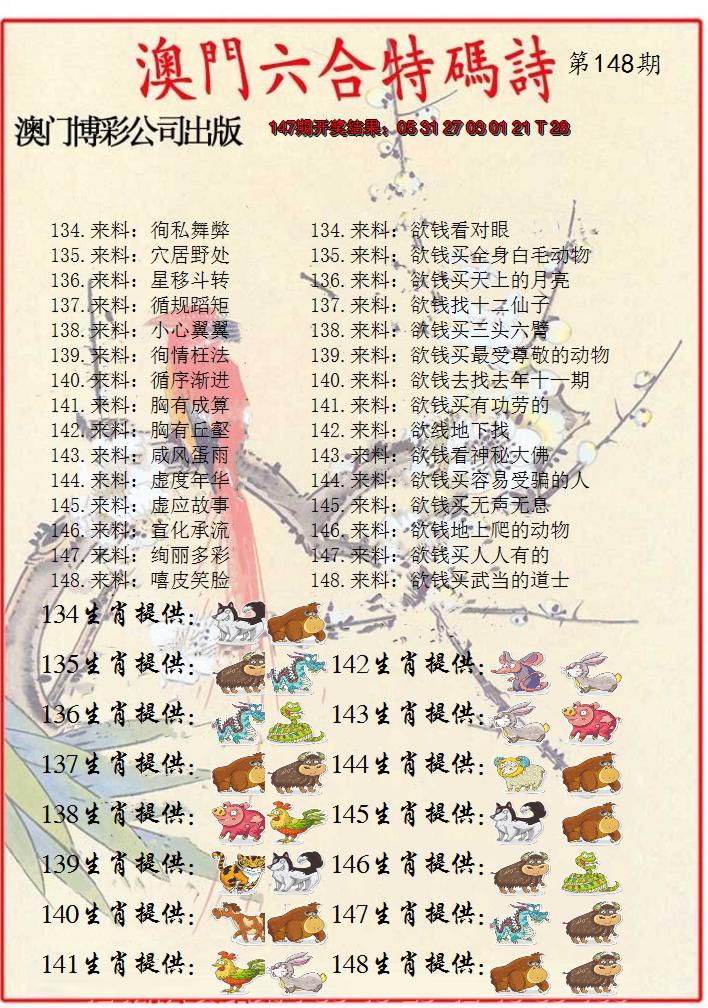 澳門六合特碼詩 第148期
澳门博彩公司出版 147期开奖结果：05 31 27 03 01 21 T 28
134.来料：徇私舞弊 134.来料：欲钱看对眼
135.来料：穴居野处 135.来料：欲钱买全身白毛动物
136.来料：星移斗转 136.来料：欲钱买天上的月亮
137.来料：循规蹈矩 137.来料：欲钱找十二仙子
138.来料：小心翼翼 138.来料：欲钱买三头六臂
139.来料：徇情枉法 139.来料：欲钱买最受尊敬的动物
140.来料：循序渐进 140.来料：欲钱去找去年十一期
141.来料：胸有成算 141.来料：欲钱买有功劳的
142.来料：胸有丘壑 142.来料：欲线地下找
143.来料：咸风蛋雨 143.来料：欲钱看神秘大佛
144.来料：虚度年华 144.来料：欲钱买容易受骗的人
145.来料：虚应故事 145.来料：欲钱买无声无息
146.来料：宣化承流 146.来料：欲钱地上爬的动物
147.来料：绚丽多彩 147.来料：欲钱买人人有的
148.来料：嘻皮笑脸 148.来料：欲钱买武当的道士
134生肖提供：
135生肖提供： 142生肖提供：
136生肖提供： 143生肖提供：
137生肖提供： 144生肖提供：
138生肖提供： 145生肖提供：
139生肖提供： 146生肖提供：
140生肖提供： 147生肖提供：
141生肖提供： 148生肖提供：